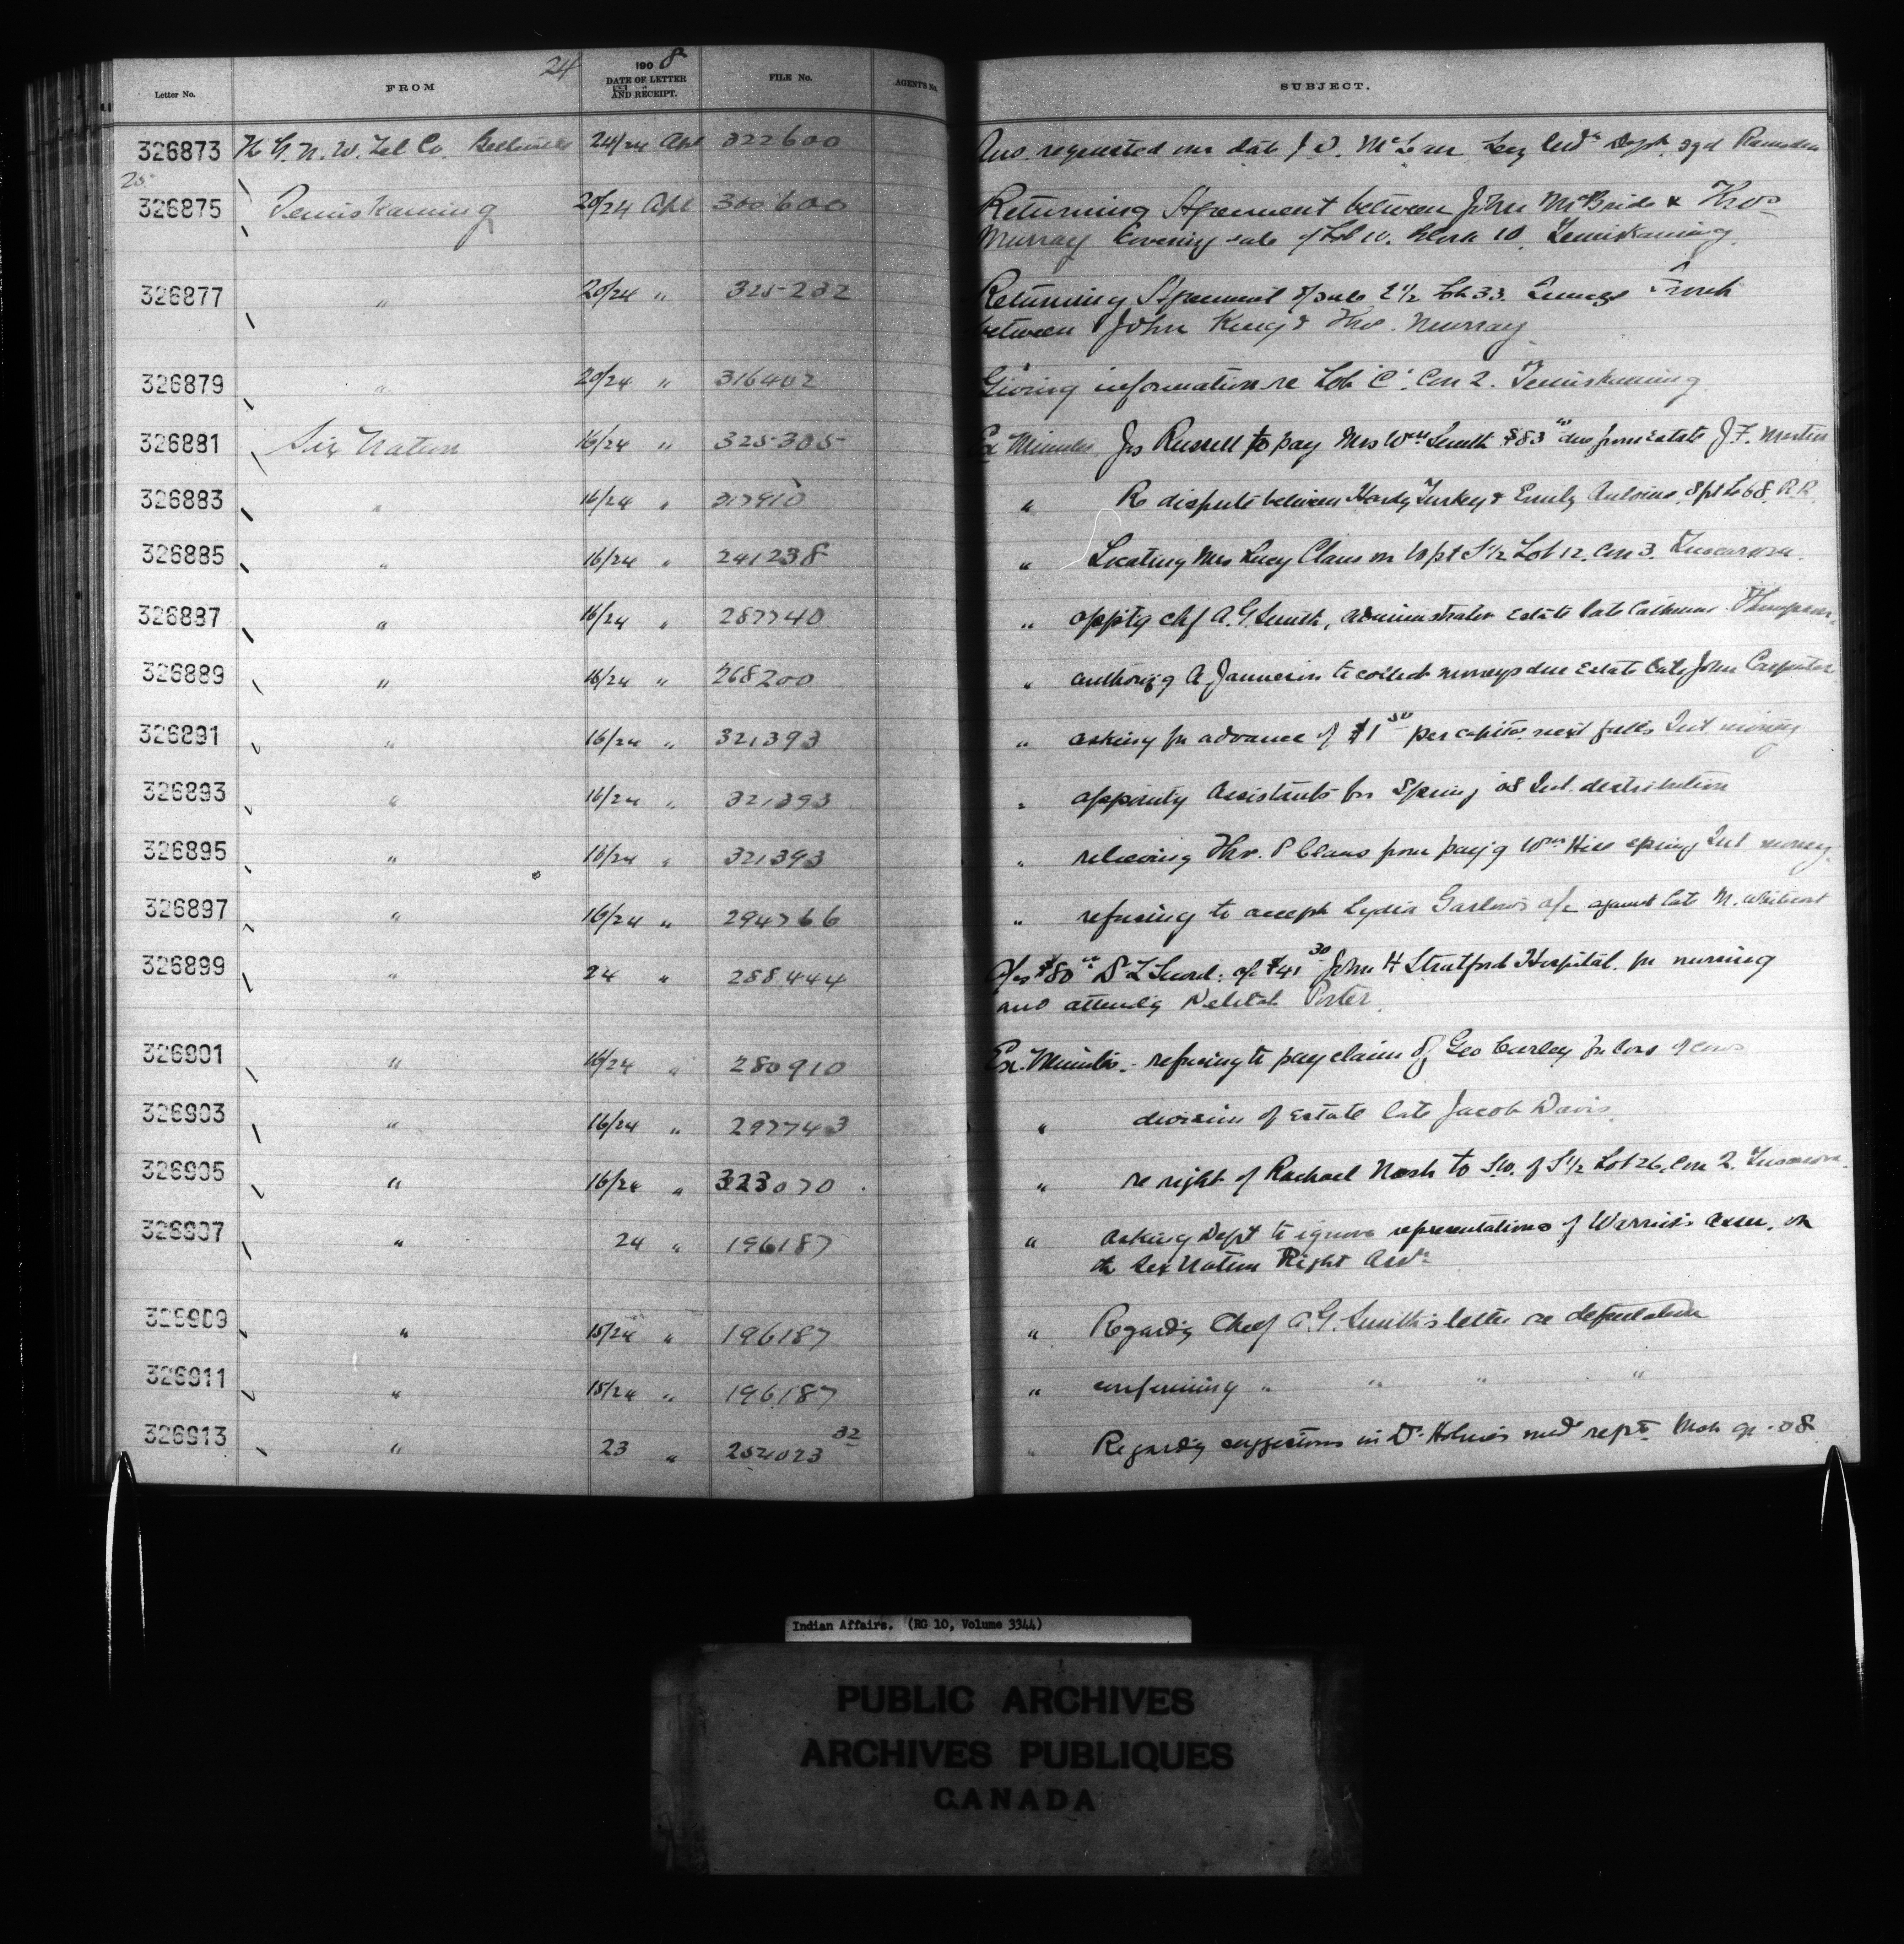 24
Letter No. FROM 1908 DATE OF LETTER AND RECEIPT. FILE No. AGENT'S No. SUBJECT.
326873 The G. N. W. Tel Co. Belleville 24/24 Apl 322600 Ans. requested our date J. D. McLean Secy Indn Dept. sgd Ramsden
25
326875 Temiskaming 20/24 Apl 300600 Returning Agreement between John McBride & Thos
Murray Covering sale of Lot 10. Block 10. Temiskaming.
326877 " 20/24 " 325232 Returning Agreement of sale E 1/2 Lot 33. Front
between John King & Thos. Murray
326879 " 20/24 " 316402 Giving information re Lot 'C'. Con 2. Temiskaming
326881 Six Nation 16/24 " 325305 Ex Minutes. Jos Russell to pay Mrs Wm Smith $83 due from Estate J. F. Martin
326883 " 16/24 " 317910 " Re dispute between Hardy Turkey & Emily Antoine, S pt Lot 68. R. R.
326885 " 16/24 " 241238 " Locating Mrs Lucy Claus on W pt S 1/2 Lot 12. Con 3. Tuscarora.
326887 " 16/24 " 287740 " appt'g Chf A. G. Smith, administrator Estate late Catherine Thompson.
326889 " 16/24 " 268200 " authoriz'g A Jamieson to collect moneys due Estate late John Carpenter
326891 " 16/24 " 321393 " asking for advance of $1 50 per capita next fall's Int. money
326893 " 16/24 " 321393 " appointg Assistants for Spring '08 Int. distribution
326895 " 16/24 " 321393 " relieving Thos. P Claus from pay'g Wm Hill spring Int money.
326897 " 16/24 " 294766 " refusing to accept Lydia Garlow's a/c against late M. Whitecoat
326899 " 24 " 288444 a/cs $80 Dr L Secord: a/c $41 30 John H Stratford Hospital. for nursing
and attendg Delilah Porter.
326901 " 16/24 " 280910 Ex. Minutes. - refusing to pay claim of Geo Curley for loss of cows
326903 " 16/24 " 297743 " division of Estate late Jacob Davis.
326905 " 16/24 " 323070 " re right of Rachael Nash to S.W. of S 1/2 Lot 26, Con 2. Tuscarora.
326907 " 24 " 196187 " asking Dept to ignore representations of Warrior's Assn. or
the Six Nation Right Assn
326909 " 15/24 " 196187 " Regardg Chief A. G. Smith's letter re deputation
326911 " 15/24 " 196187 " confirming " " " "
326913 " 23 " 254023 32 " Regardg suggestions in Dr. Holmes med rept Mch qr - 08
Indian Affairs. (RG 10, Volume 3344)
PUBLIC ARCHIVES
ARCHIVES PUBLIQUES
CANADA